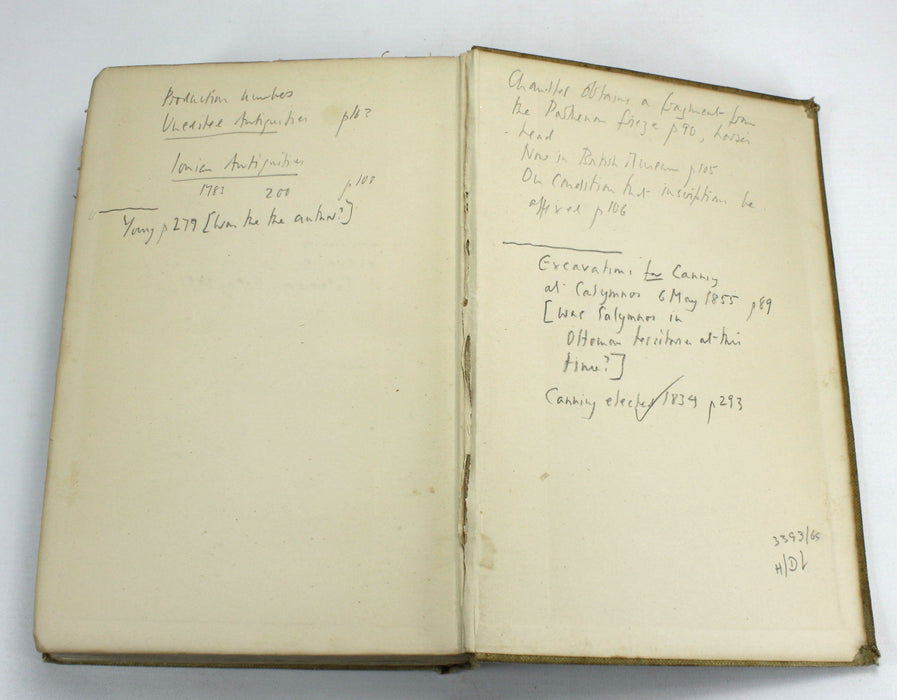 Production numbers
Unedited Antiquities p103
Ionian Antiquities
1783 200 p103
Young p279 [Was he the author?]
Chandler obtains a fragment from
the Parthenon frieze p90, horses
head
Now in British Museum p105
On condition that inscription be
affixed p106
Excavations for Canning
at Calymnos 6 May 1855 p89
[was Calymnos in
Ottoman territory at this
time?]
Canning elected 1834 p293
3393/65
H/DL